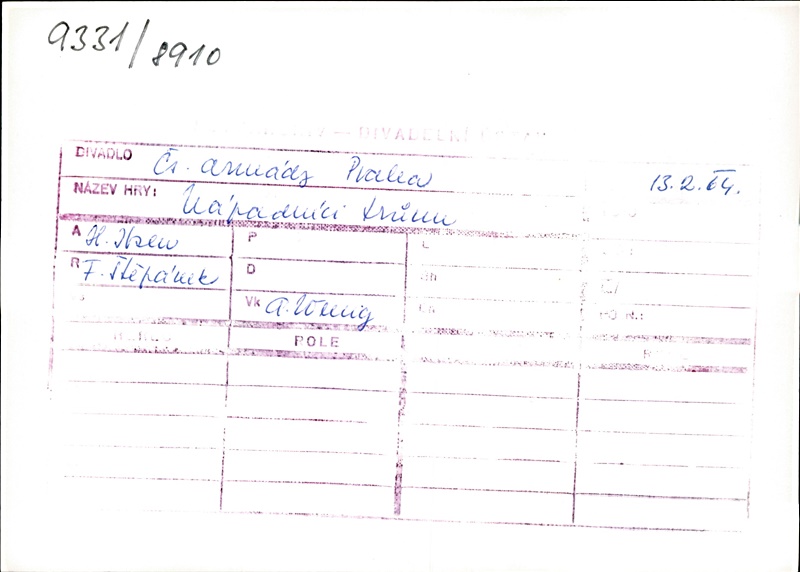 9331/8910
DIVADELNÍ
DIVADLO Čs. armády Praha 13.2.64.
NÁZEV HRY: Nápadníci trůnu
A H. Ibsen P
R F. Štěpánek D
Vk A. Wenig
POLE